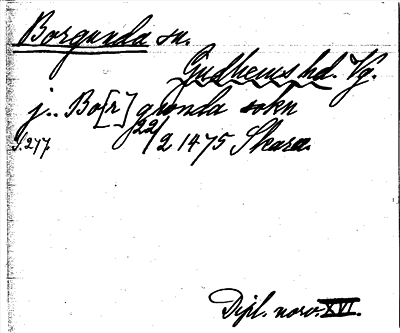 Borgunda sn.
Gudhems hd. Vg.
j.. Bo[r]gunda sokn
s. 277. 22/2 1475 Skara.
Dipl. norv. XVI.